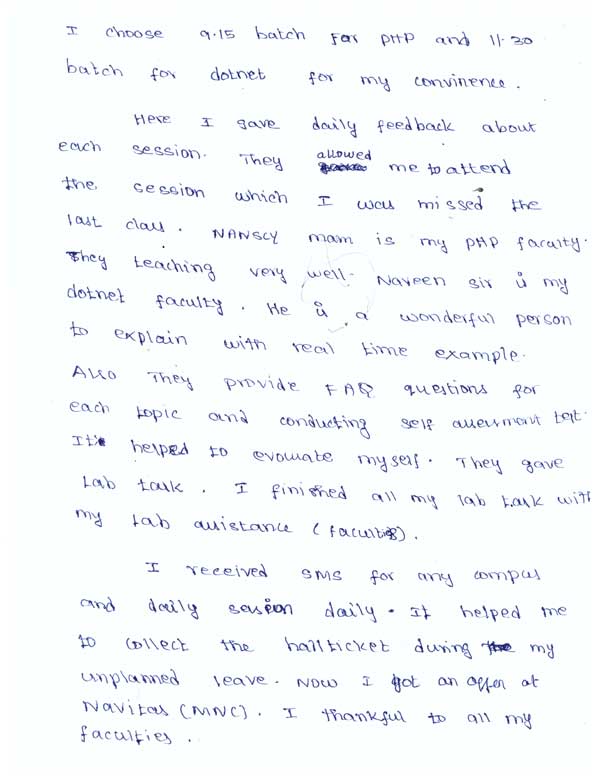 I choose 9.15 batch for PHP and 11.30
batch for dotnet for my convinence.
Here I gave daily feedback about
each session. They allowed me to attend
the session which I was missed the
last class. NANSCY mam is my PHP faculty.
They teaching very well. Naveen sir is my
dotnet faculty. He is a wonderful person
to explain with real time example.
Also They provide FAQ questions for
each topic and conducting self assessment test.
It helped to evoluate myself. They gave
Lab task. I finished all my lab task with
my lab assistance (faculties).
I received SMS for any compus
and daily session daily. It helped me
to collect the hallticket during my
unplanned leave. Now I got an offer at
Navitas (MNC). I thankful to all my
faculties.